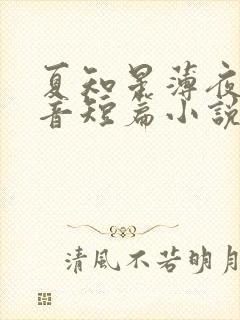 夏知晏薄夜
音短篇小說
清風不若明月